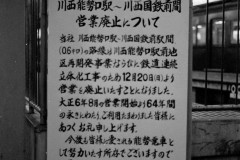 川西能勢口駅〜川西国鉄前間
営業廃止について
当社 川西能勢口駅〜川西国鉄前駅間
(0.6キロ)の路線は川西能勢口駅前地
区再開発事業ならびに鉄道連続
立体化工事のため12月20日(日)より
営業廃止することになりました。
大正6年8月の営業開始より64年間
の永きにわたりご利用たまわりました皆様に
あつくお礼申し上げます。
今後も皆様に愛される能勢電車と
して努力いたす所存でございますので